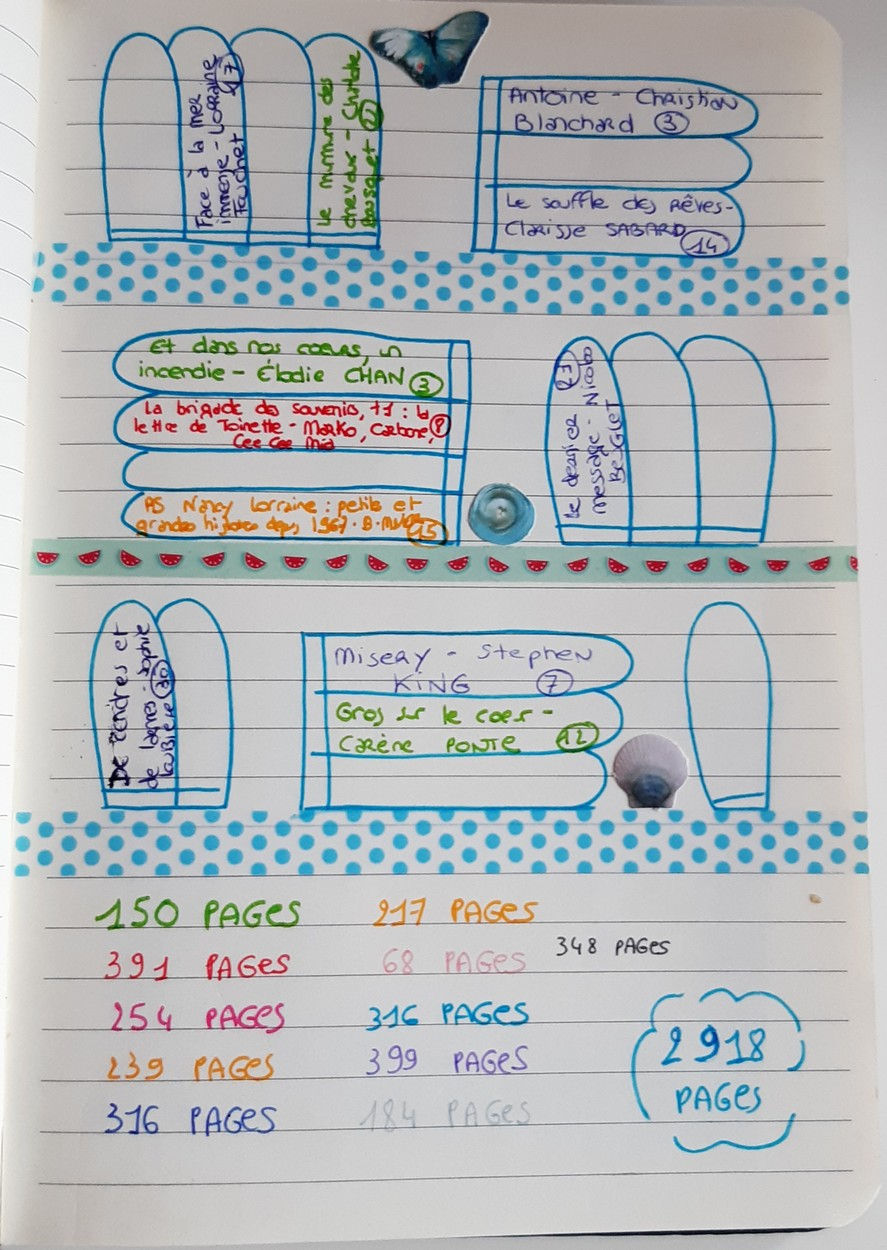 Face à la mer
immense - Lorraine
Fouchet
17
Le murmure des
chevaux -
Bousquet
Antoine - Christian
Blanchard 3
Le souffle des rêves -
Clarisse SABARD
14
Et dans nos coeurs, un
incendie - Élodie CHAN 3
La brigade des souvenirs, t1 : la
lettre de Toinette - Marko, Carbone,
Cee Cee Mia
AS Nancy Lorraine : petits et
grandes histoires depuis 1967 - B.
15
27
Le dernier
message - Nicolas
BEUGLET
De cendres et
de larmes - Sophie
LOUBIÈRE 30
Misery - Stephen
KING 7
Gros sur le coeur -
Carène PONTE 12
150 PAGES 217 PAGES
348 PAGES
391 PAGES 68 PAGES
254 PAGES 316 PAGES
239 PAGES 399 PAGES
316 PAGES 184 PAGES
2918
PAGES